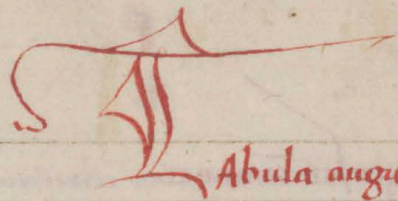 TAbula augu